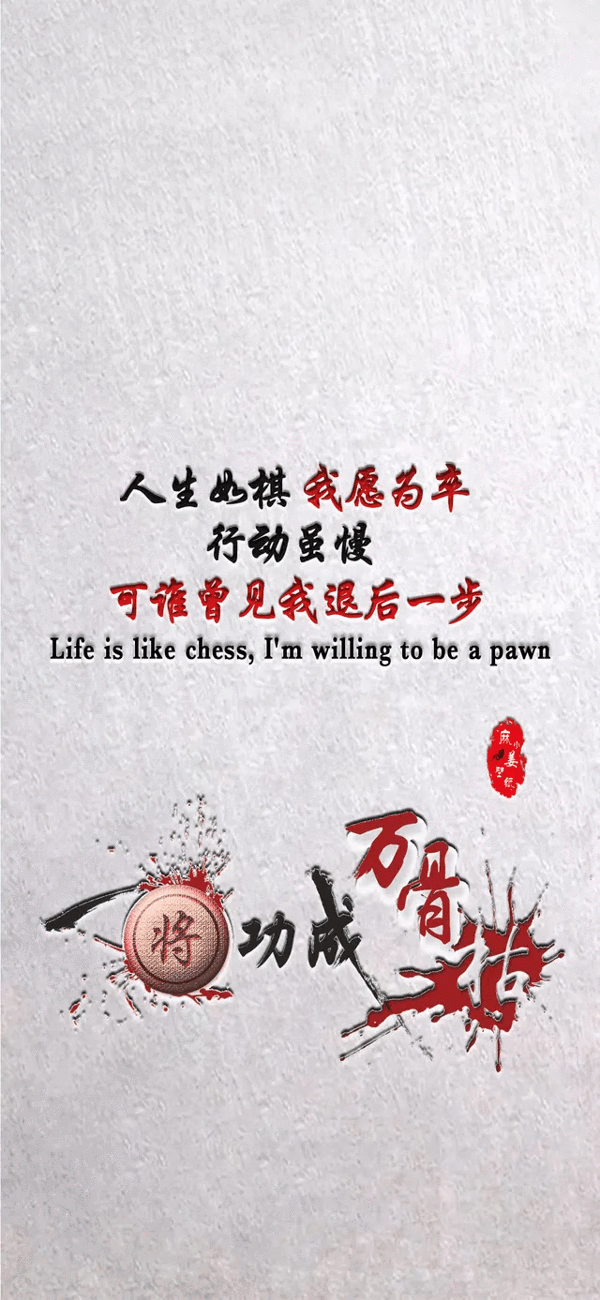 人生如棋 我愿为卒
行动虽慢
可谁曾见我退后一步
Life is like chess, I'm willing to be a pawn
麻小姜壁纸
一将功成万骨枯